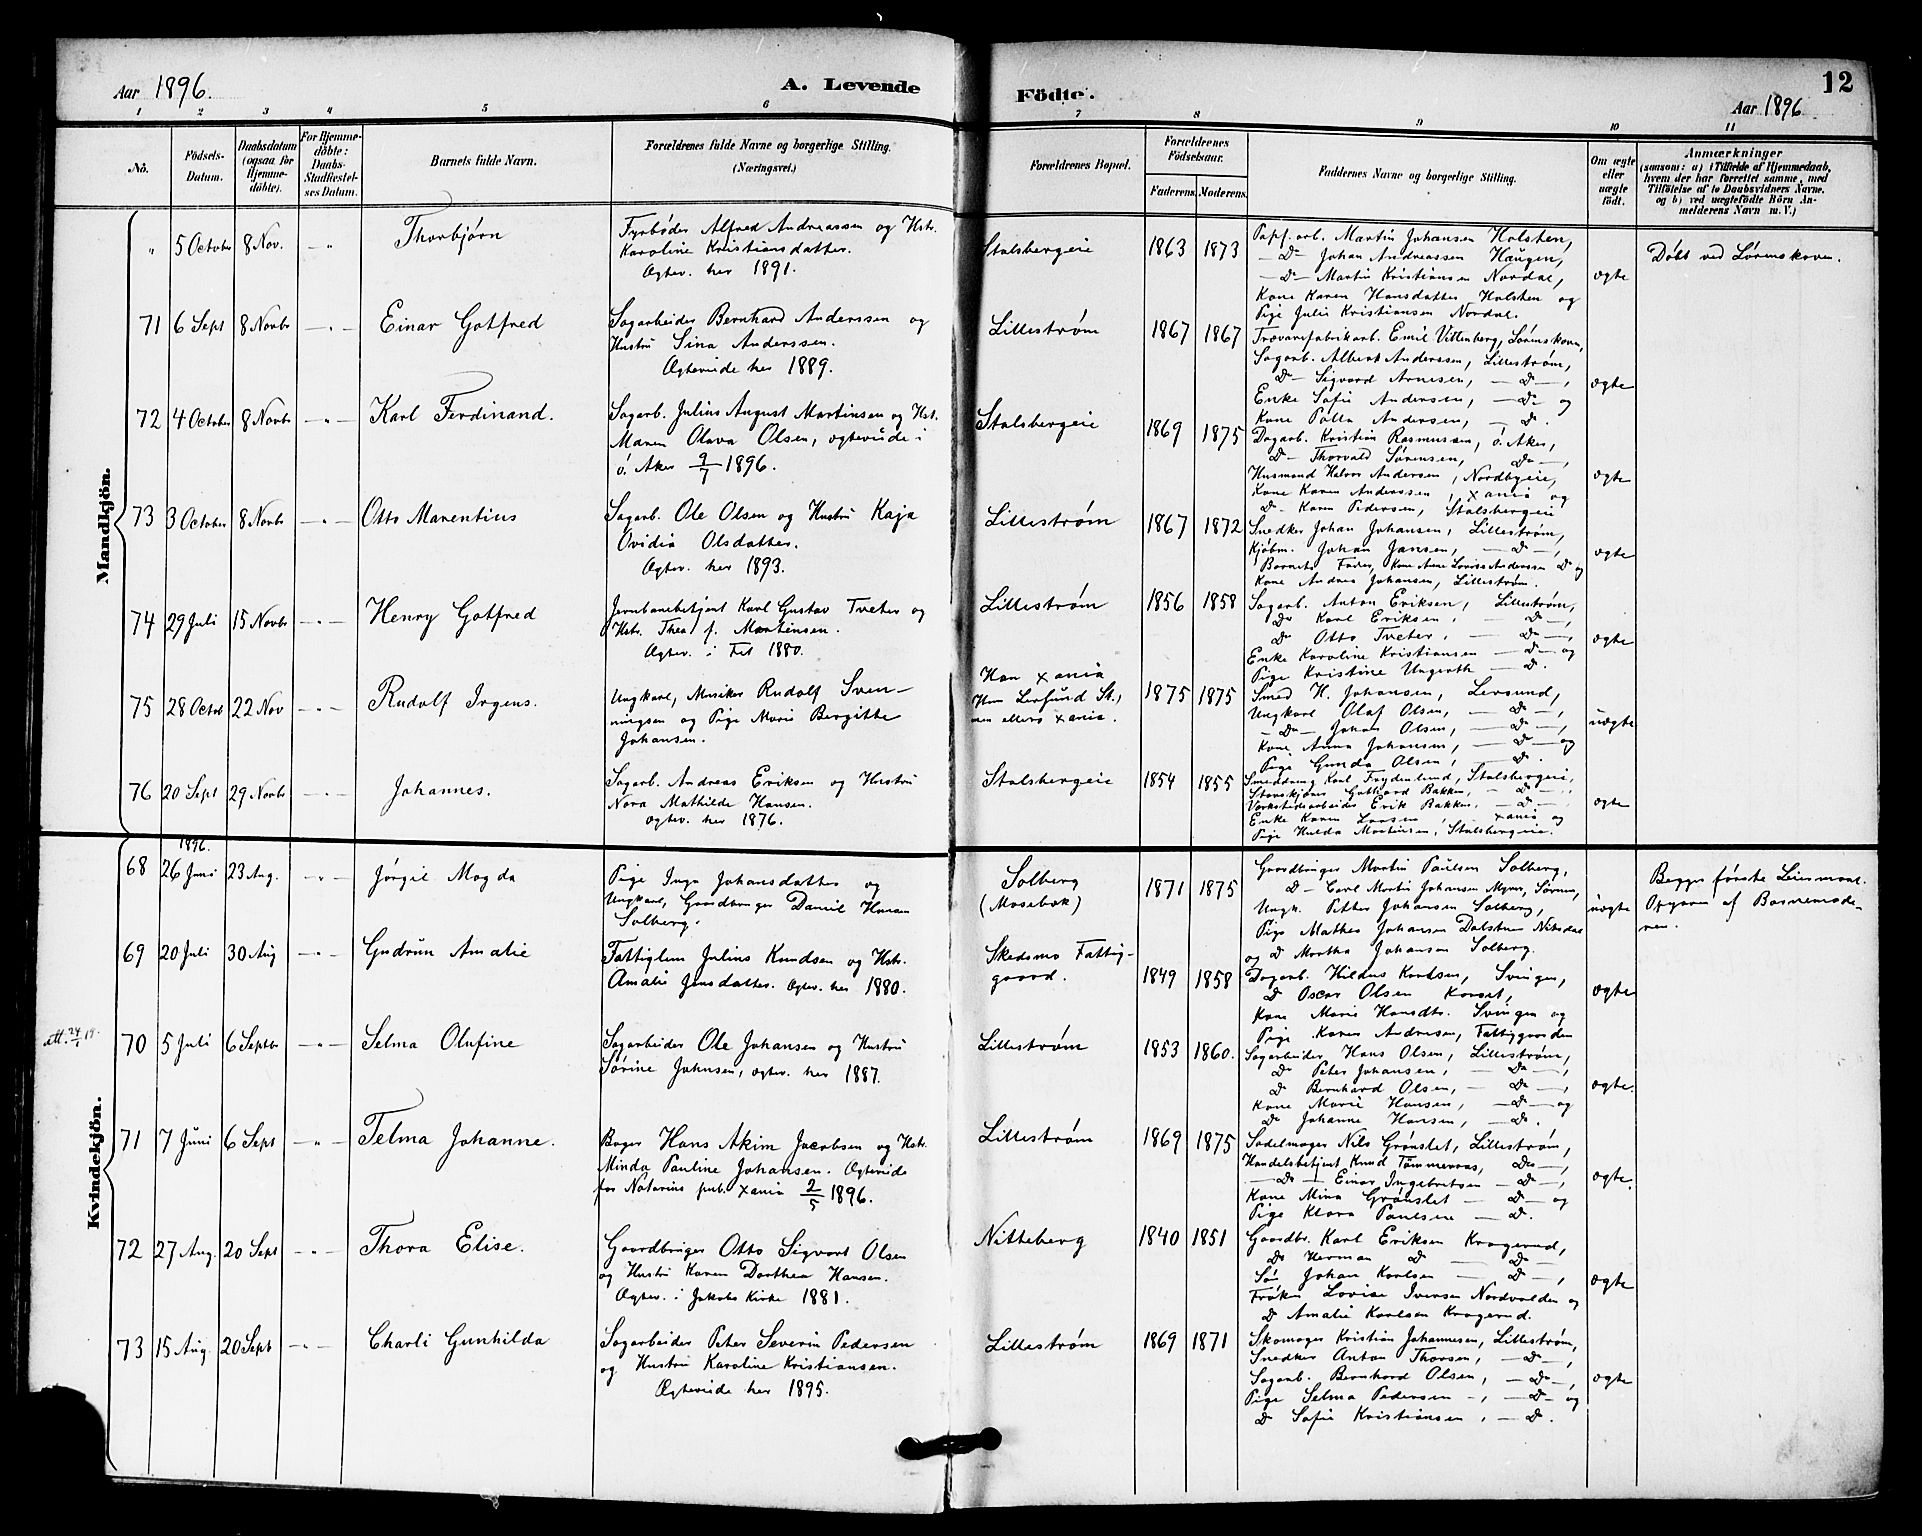 Aar 1896.
A. Levende
Födte.
12
Aar 1896
1 2 3 4 5 6 7 8 9 10 11
No.
Födsels-
Datum.
Daabsdatum
(ogsaa for
Hjemme-
döbte).
For Hjemme-
döbte:
Daabs-
Stadfæstel-
ses Datum.
Barnets fulde Navn.
Forældrenes fulde Navne og borgerlige Stilling.
(Næringsvei.)
Forældrenes Bopæl.
Forældrenes
Födselsaar.
Faderens. Moderens.
Faddernes Navne og borgerlige Stilling.
Om ægte
eller
uægte
födt.
Anmærkninger
(saasom: a) i Tilfælde af Hjemmedaab,
hvem der har forrettet samme, med
Tilföielse af to Daabsvidners Navne.
og b) ved uægtefödte Börn An-
melderens Navn m. V.)
Mandkjön.
" 5 October 8 Nov. - " Thorbjørn
Fyrbøder Alfred Andreassen og Hstr.
Karoline Kristiansdatter.
Ægtev. her 1891.
Stalsbergeie 1863 1873
Papf. arb. Martin Johansen Holsten,
- Do - Johan Andreassen Haugen,
- Do - Martin Kristiansen Nordal,
Kone Karen Hansdatter Holsten og
Pige Julie Kristiansen Nordal.
ægte
Døbt ved Lørenskoven.
71 6 Sept 8 Novbr - " - Einar Gotfred
Sagarbeider Bernhard Anderssen og
Hustru Sina Anderssen.
Ægteviede her 1889.
Lillestrøm 1867 1867
Trævarefabrikarb. Emil Vittenberg, Lørenskoven,
Sagarb. Albert Anderssen, Lillestrøm,
Do - Sigvard Arnesen, - Do -,
Enke Sofie Andersen, - Do - og
Kone Polla Andersen, - Do.
ægte
72 4 October 8 Novbr - " - Karl Ferdinand.
Sagarb. Julius August Martinsen og Hst.
Maren Olava Olsen, ægteviede i
Ø. Aker 9/7 1896.
Stalsbergeie 1869 1875
Dagarb. Kristian Rasmussen, Ø. Aker,
Do - Thorvald Sørensen, Do -,
Husmand Halvor Andersen, Nordbyeie,
Kone Karen Anderssen, Xania og
Do - Karen Pedersen, Stalsbergeie
ægte
73 3 October 8 Novbr - " - Otto Marentius
Sagarb. Ole Olsen og Hustru Kaja
Ovidia Olsdatter.
Ægtev. her 1893.
Lillestrøm 1867 1872
Snedker Johan Johansen, Lillestrøm,
Kjøbm. Johan Jansen, - Do -,
Barnets Fader, Kone Anne Lovise Anderssen Do og
Kone Andrea Johansen, Lillestrøm.
ægte
74 29 Juli 15 Novbr - " - Henry Gotfred
Jernbanebetjent Karl Gustav Tveter og
Hstr. Thea f. Martinsen.
Ægtev. i Fet 1880.
Lillestrøm 1856 1858
Sagarb. Anton Eriksen, Lillestrøm,
Do Karl Eriksen, - Do -,
Do Otto Tveter, - Do -,
Enke Karoline Kristiansen - Do - og
Pige Kristine Ungerth - Do.
ægte
75 28 Octob 22 Nov - " - Rudolf Irgens.
Ungkarl, Musiker Rudolf Sven-
ningsen og Pige Marie Bergitte
Johansen.
Han Xania
Hun Lersund St.,
men ellers Xania.
1875 1875
Smed H. Johansen, Lersund,
Ungkarl Olaf Olsen, - Do -,
- Do - Johan Olsen, - Do -,
Kone Anna Johansen, - Do - og
Pige Gunda Olsen, - Do.
uægte
76 20 Sept 29 Novbr - " - Johannes.
Sagarb. Andreas Eriksen og Hustru
Nora Mathilde Hansen.
Ægtev. her 1876.
Stalsbergeie 1854 1855
Smeddreng Karl Frydenlund, Stalsbergeie,
Gotthard Bakken, - Do -,
Værkstedsarbeider Erik Bakken, - Do -
Enke Karen Larsen Xania og
Pige Hulda Martinsen, Stalsbergeie.
ægte
Kvindekjön.
1896.
68 26 Juni 23 Aug. - " - Jørgil Magda
Pige Inga Johansdatter og
Ungkarl, Gaardbruger Daniel Hansen
Solberg.
Solberg
(Mosebæk)
1871 1875
Gaardbruger Martin Paulsen Solberg,
Do - Carl Martin Johansen Myrer, Sørum,
Ungk. Petter Johansen Solberg,
Pige Mathea Johansen Dalstuen Nitedal
og Do Martha Johansen Solberg.
uægte
Begges første Leiermaal.
Opgave af Barnemode-
ren.
69 20 Juli 30 Aug - " - Gudrun Amalie
Fattiglem Julius Knudsen og Hstr.
Amalie Jensdatter. Ægtev. her 1880.
Skedsmo Fattig-
gaard.
1849 1858
Dagarb. Hildus Knudsen, Svingen,
Do Oscar Olsen Korset,
Kone Marie Hansdtr. Svingen og
Pige Karen Andresen, Fattiggaarden
ægte
att. 24/1 19.
70 5 Juli 6 Septbr - " - Selma Olufine
Sagarbeider Ole Johansen og Hustru
Sørine Johnsen, ægtev. her 1887.
Lillestrøm 1853 1860.
Sagarbeider Hans Olsen, Lillestrøm,
Do Peter Johansen, - Do -,
Do Bernhard Olsen, - Do -,
Kone Marie Hansen, - Do - og
Do Johanne Hansen, - Do.
ægte.
71 7 Juni 6 Sept - " - Telma Johanne.
Bager Hans Akim Jacobsen og Hstr.
Minda Pauline Johansen. Ægteviede
for Notarius pub. Xania 2/5 1896.
Lillestrøm 1869 1875
Sadelmager Nils Grønslet, Lillestrøm,
Handelsbetjent Knud Tømmeraas, Do -,
- Do - Einar Ingebretsen - Do -,
Kone Mina Grønslet - Do - og
Pige Klara Paulsen - Do.
ægte.
72 27 Aug. 20 Sept - " - Thora Elise.
Gaardbruger Otto Sigvart Olsen
og Hustru Karen Dorthea Hansen.
Ægtev. i Jakobs Kirke 1881.
Nitteberg 1840 1851
Gaardbr. Karl Eriksen Kragerud,
Do Herman Do - Do -
Søn Johan Karlsen - Do -,
Frøken Lovise Iversen Nordvolden og
Do Amalie Karlsen Kragerud.
ægte
73 15 Aug. 20 Sept - " - Charli Gunhilda
Sagarbeider Peter Severin Pedersen
og Hustru Karoline Kristiansen.
Ægteviede her 1895.
Lillestrøm 1869 1871
Skomager Kristian Johannesen, Lillestrøm,
Snedker Anton Thorsen, - Do -,
Sagarb. Bernhard Olsen, - Do -,
Pige Selma Pedersen -, - Do - og
Do Sofie Kristiansen, - Do.
ægte